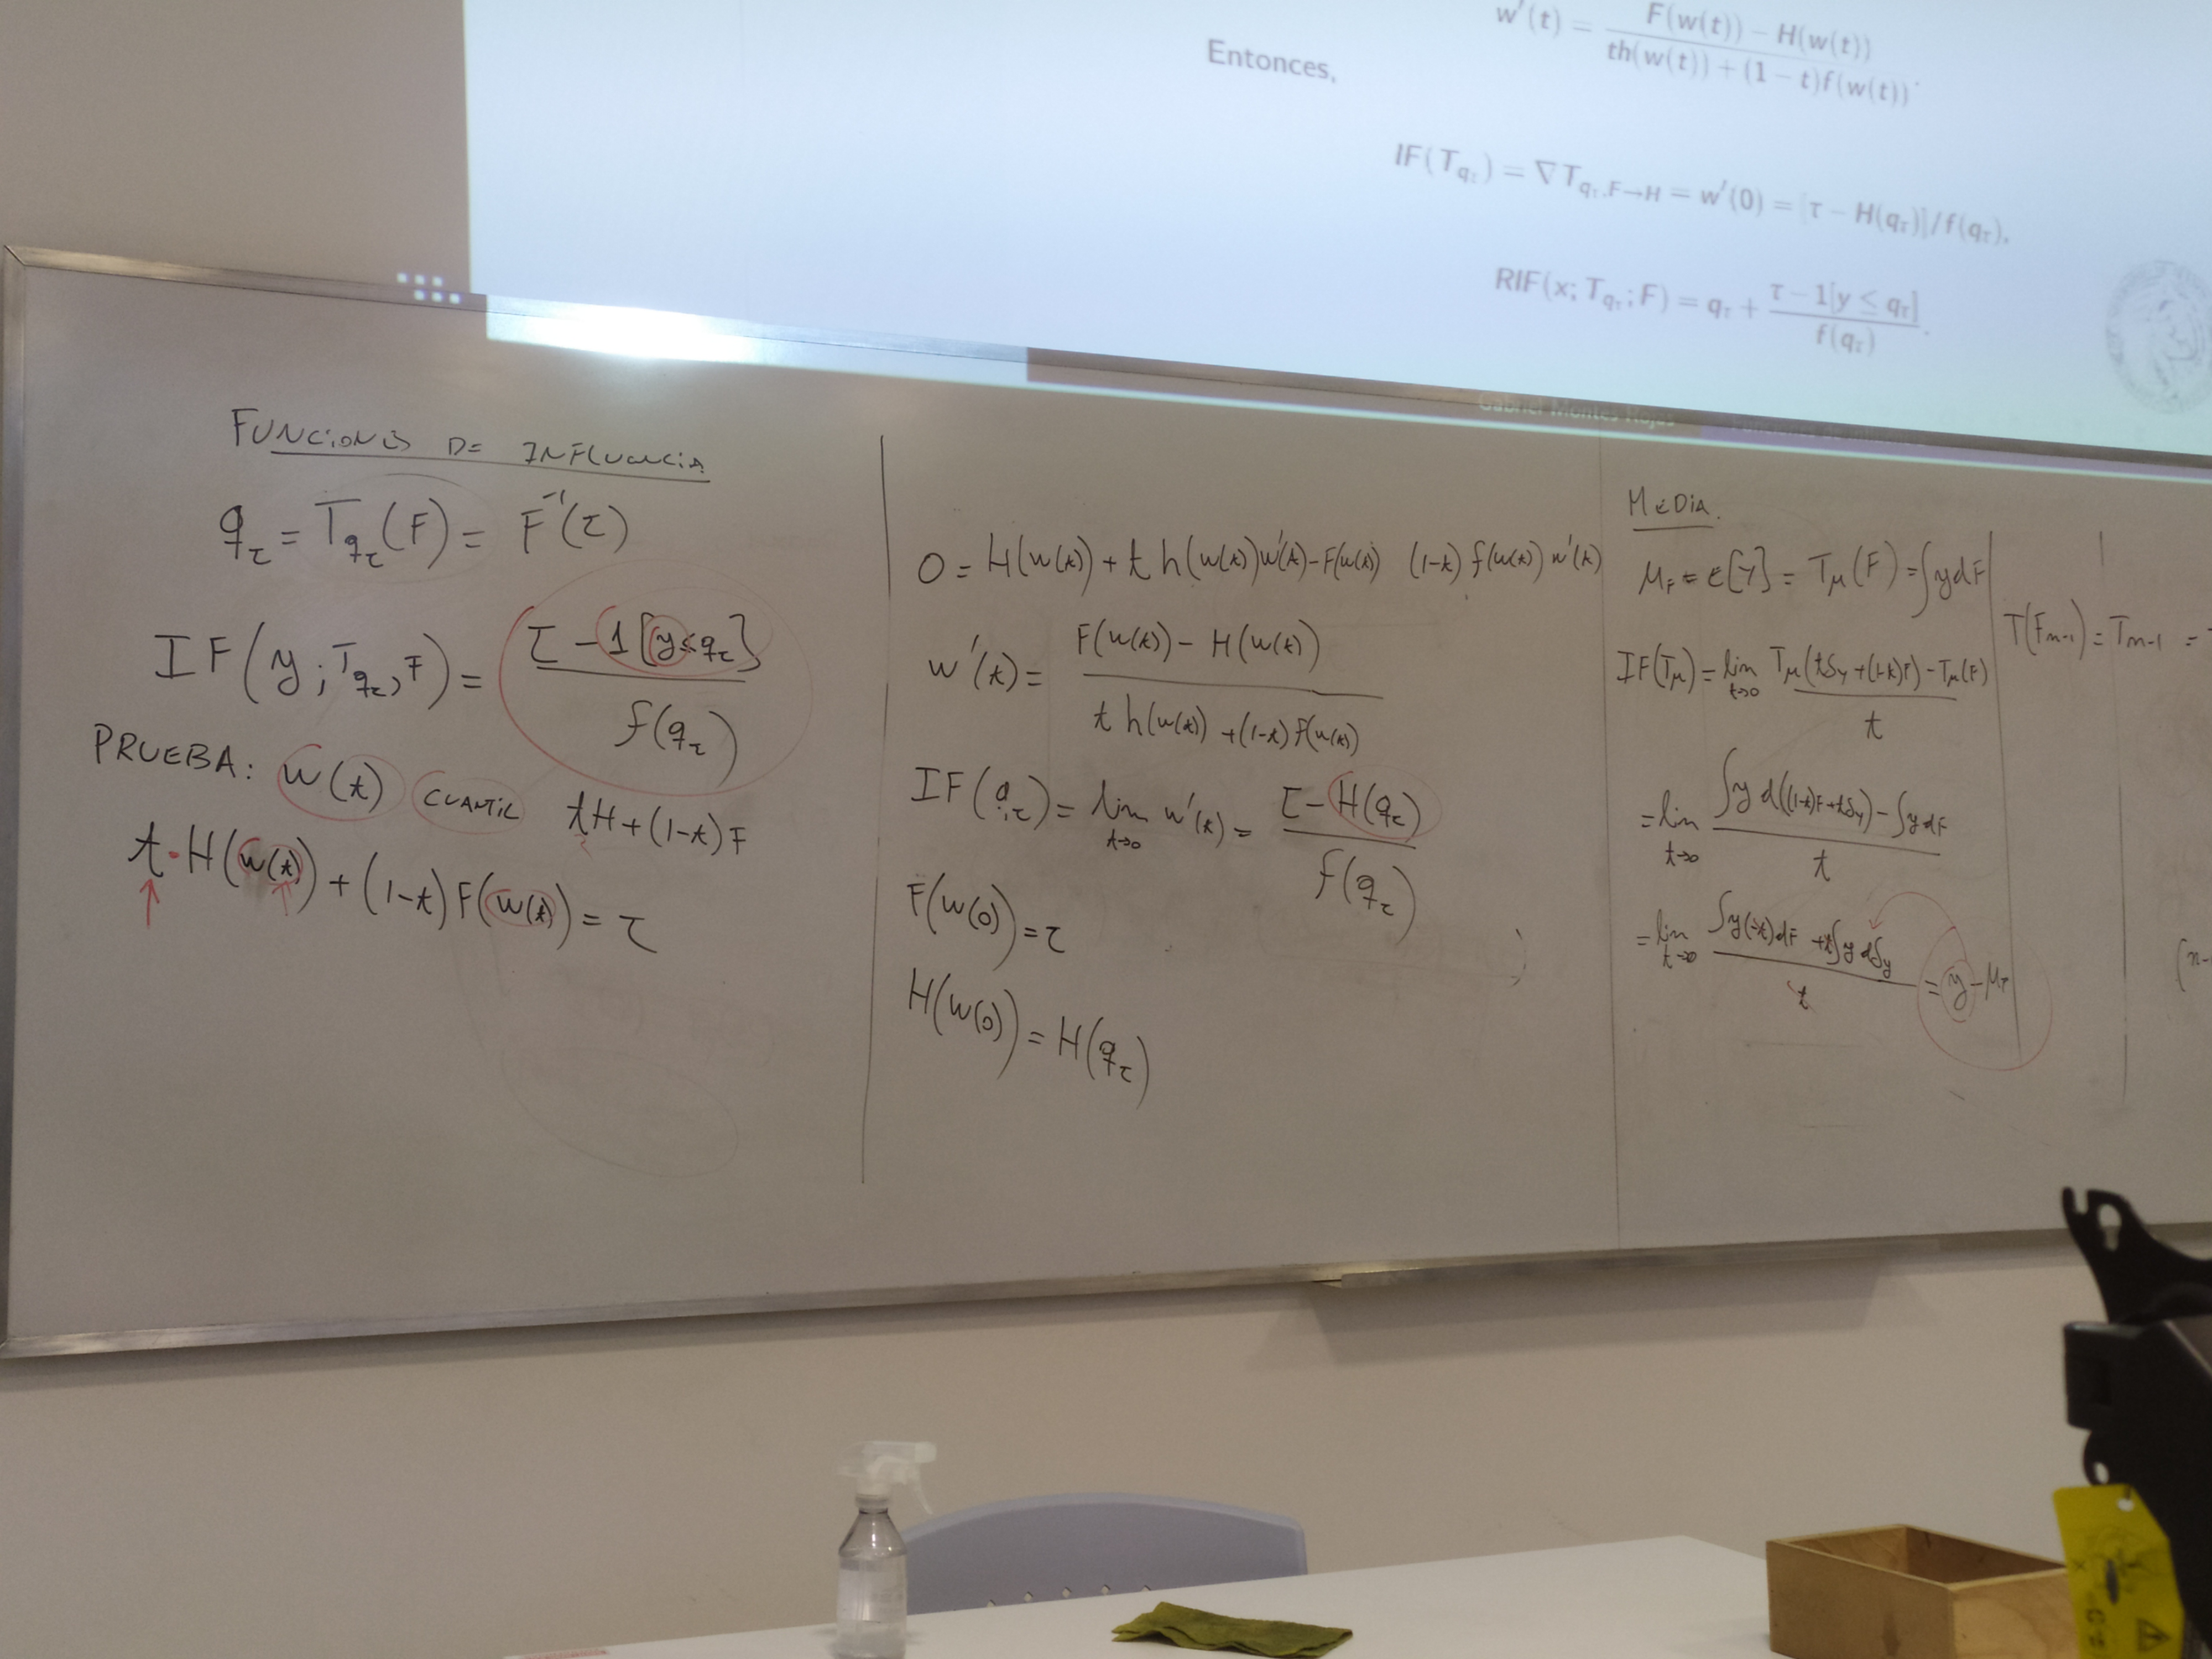 w'(t) = F(w(t)) − H(w(t)) / th(w(t)) + (1 − t)f(w(t)).
Entonces,
IF(T_{qτ}) = ∇T_{qτ,F→H} = w'(0) = [τ − H(qτ)]/f(qτ).
RIF(x; T_{qτ}; F) = qτ + τ − 1[y ≤ qτ] / f(qτ).
Gabriel Montes Rojas
FUNCIONES DE INFLUENCIA
q_τ = T_{qτ}(F) = F⁻¹(τ)
IF(y; T_{qτ}, F) = τ − 1[y ≤ q_τ] / f(q_τ)
PRUEBA: w(t) CUANTIL tH + (1−t)F
t·H(w(t)) + (1−t)F(w(t)) = τ
0 = H(w(t)) + t h(w(t))w'(t) − F(w(t)) (1−t) f(w(t)) w'(t)
w'(t) = F(w(t)) − H(w(t)) / t h(w(t)) + (1−t) f(w(t))
IF(q_τ) = lim t→0 w'(t) = τ − H(q_τ) / f(q_τ)
F(w(0)) = τ
H(w(0)) = H(q_τ)
MEDIA.
μ_F = E[Y] = T_μ(F) = ∫y dF
IF(T_μ) = lim t→0 T_μ(tδ_y + (1−t)F) − T_μ(F) / t
= lim t→0 ∫y d((1−t)F + tδ_y) − ∫y dF / t
= lim t→0 ∫y(−t)dF + t∫y dδ_y / t = y − μ_F
T(F_{n−1}) = T_{n−1} =
(n−